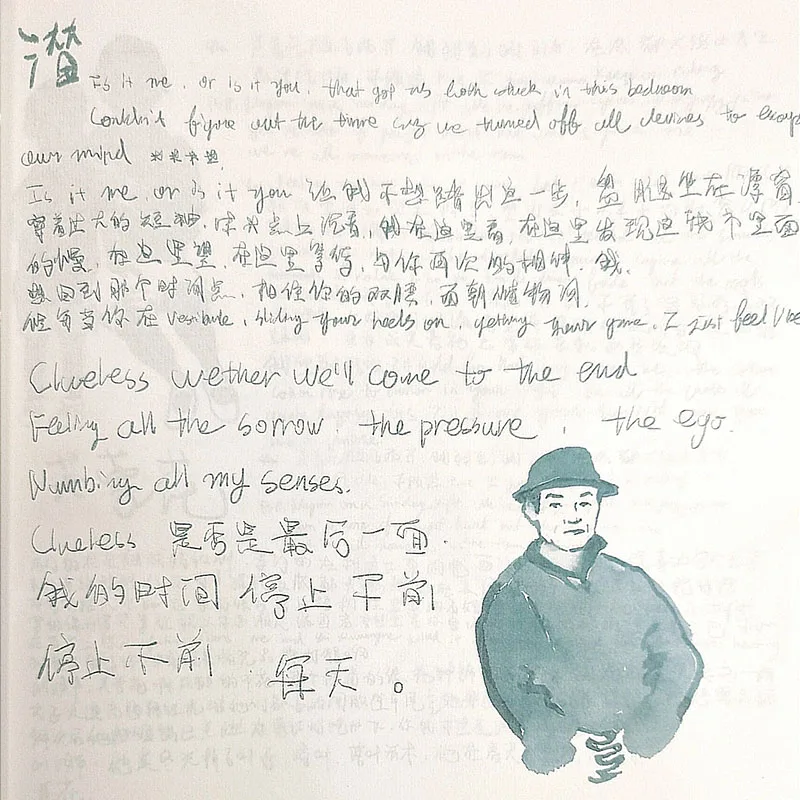 潜
Is it me, or is it you, that got us both stuck in this bedroom
Couldn't figure out the time cuz we turned off all devices to escape
our mind ****.
Is it me, or is it you 让我不想踏出这一步, 盘腿坐在
穿着 的短袖, , 我在这里看, 在这里发现这城市里面
的慢, 在这里 , 在这里等待, 与你再次的相 我
想回到那个时间点, 你的双腿, 面朝
你在 vestibule, sliding your heels on, getting your , I just feel like
Clueless wether we'll come to the end
Feeling all the sorrow, the pressure, the ego.
Numbing all my senses.
Clueless 是否是最后一面.
我的时间 停止不前
停止不前 天。